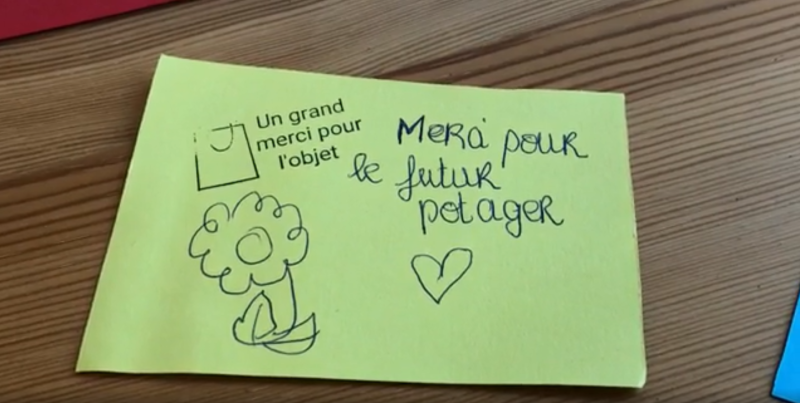 Un grand
merci pour
l'objet
Merci pour
le futur
potager